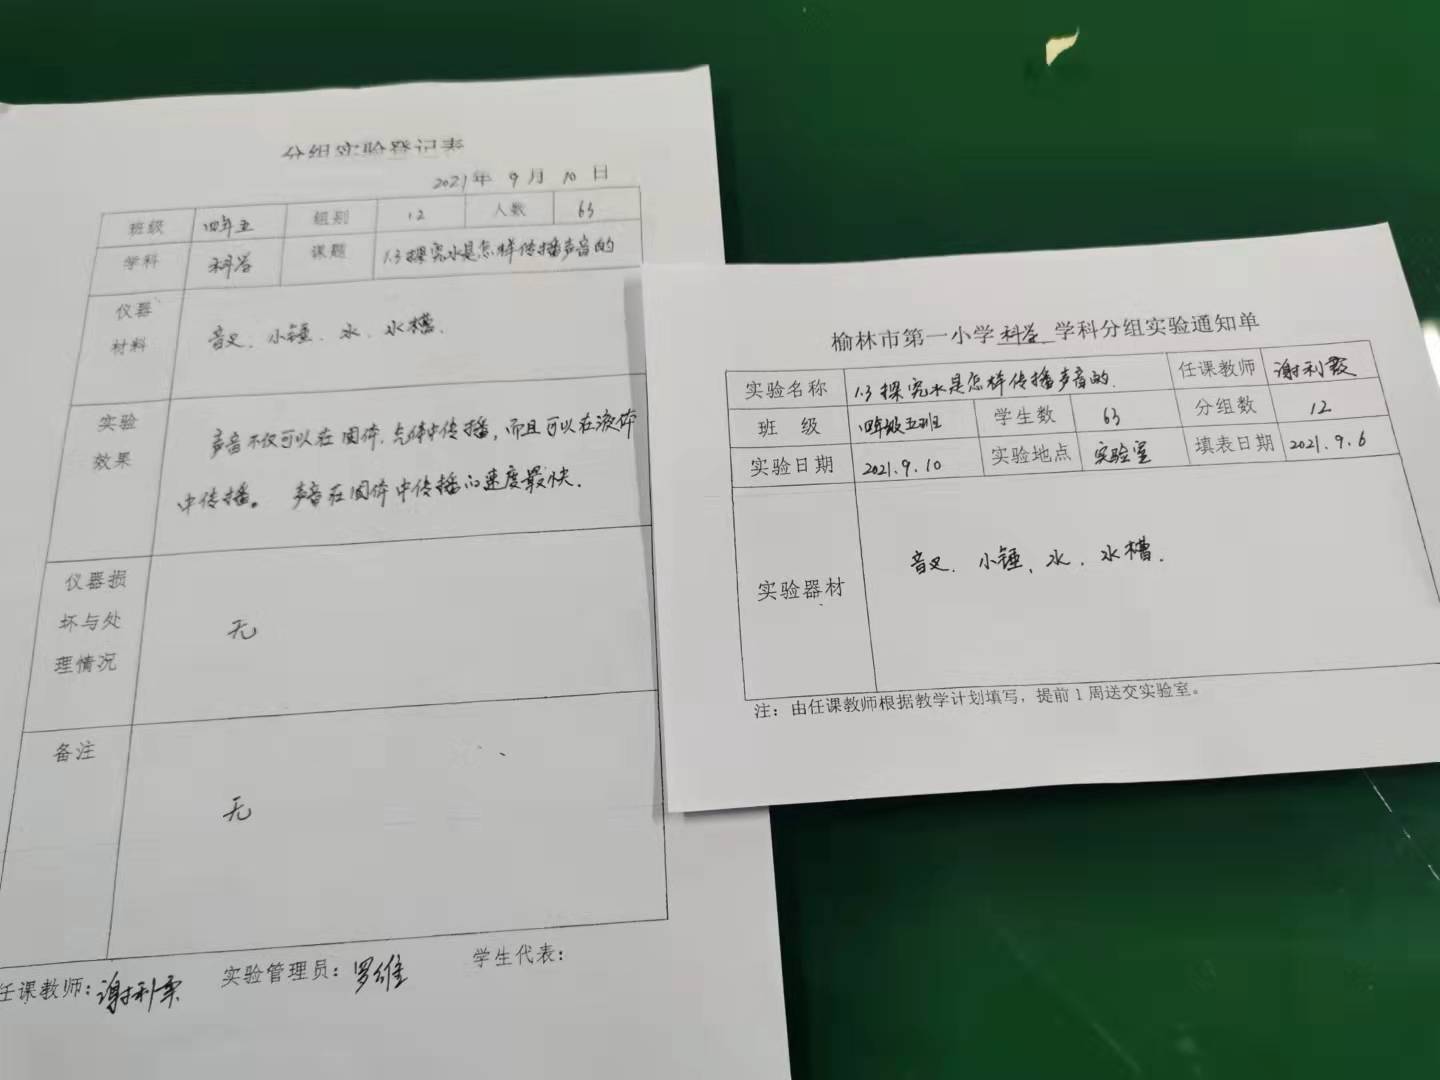 分组实验登记表
2021年 9月 10日
班级 四年五 组别 12 人数 63
学科 科学 课题 1.3探究水是怎样传播声音的
仪器
材料
音叉、小锤、水、水槽.
实验
效果
声音不仅可以在固体、气体中传播,而且可以在液体
中传播。声音在固体中传播的速度最快.
仪器损
坏与处
理情况
无
备注
无
任课教师:谢利 实验管理员:罗维 学生代表:
榆林市第一小学 科学 学科分组实验通知单
实验名称 1.3探究水是怎样传播声音的. 任课教师 谢利
班 级 四年级五班 学生数 63 分组数 12
实验日期 2021.9.10 实验地点 实验室 填表日期 2021.9.6
实验器材 音叉、小锤、水、水槽.
注:由任课教师根据教学计划填写,提前1周送交实验室。